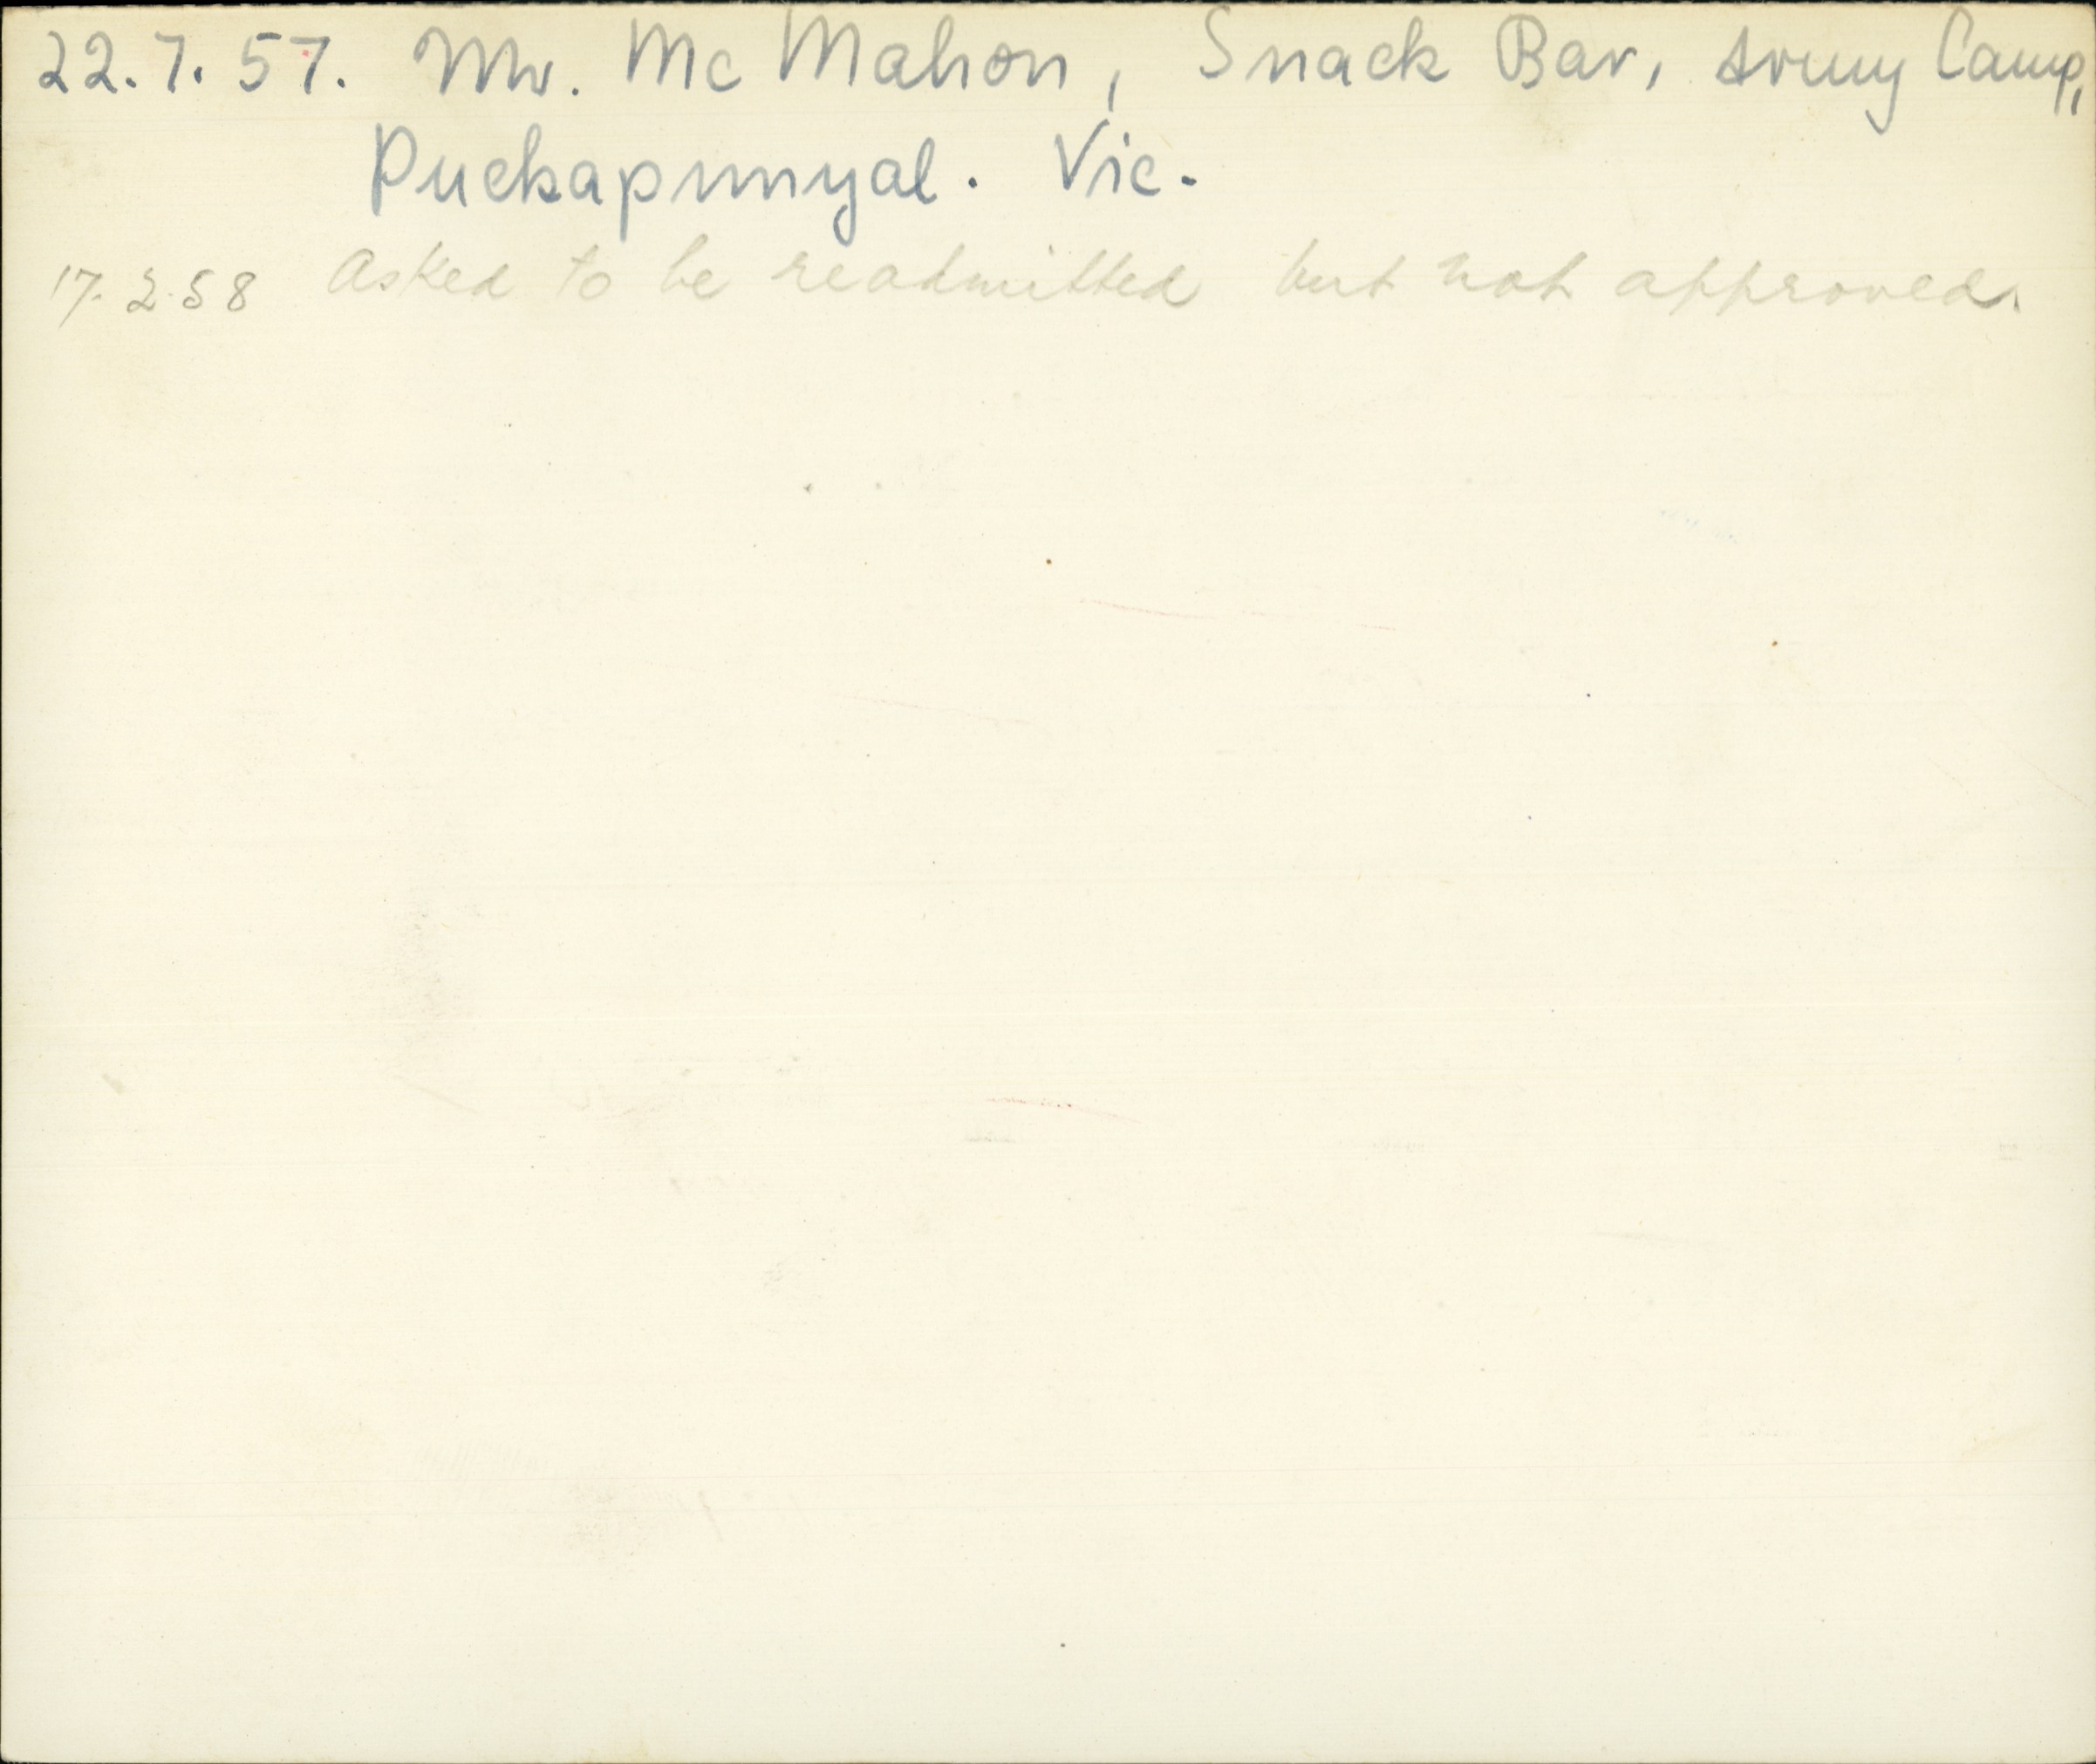 22.7.57. Mr. Mc Mahon, Snack Bar, Army Camp,
Puckapunnyal. Vic.
17.2.58 Asked to be readmitted but not approved.